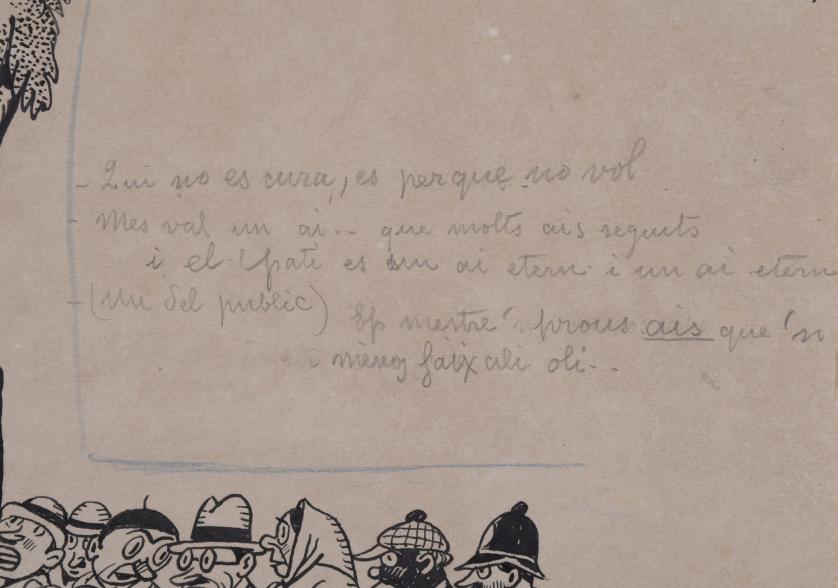 - Qui no es cura, es perque no vol
- Mes val un ai.. que molts ais seguits
i el patí es un ai etern i un ai etern
- (Un del public) Ep mestre prous ais que 'n
faix ali oli..